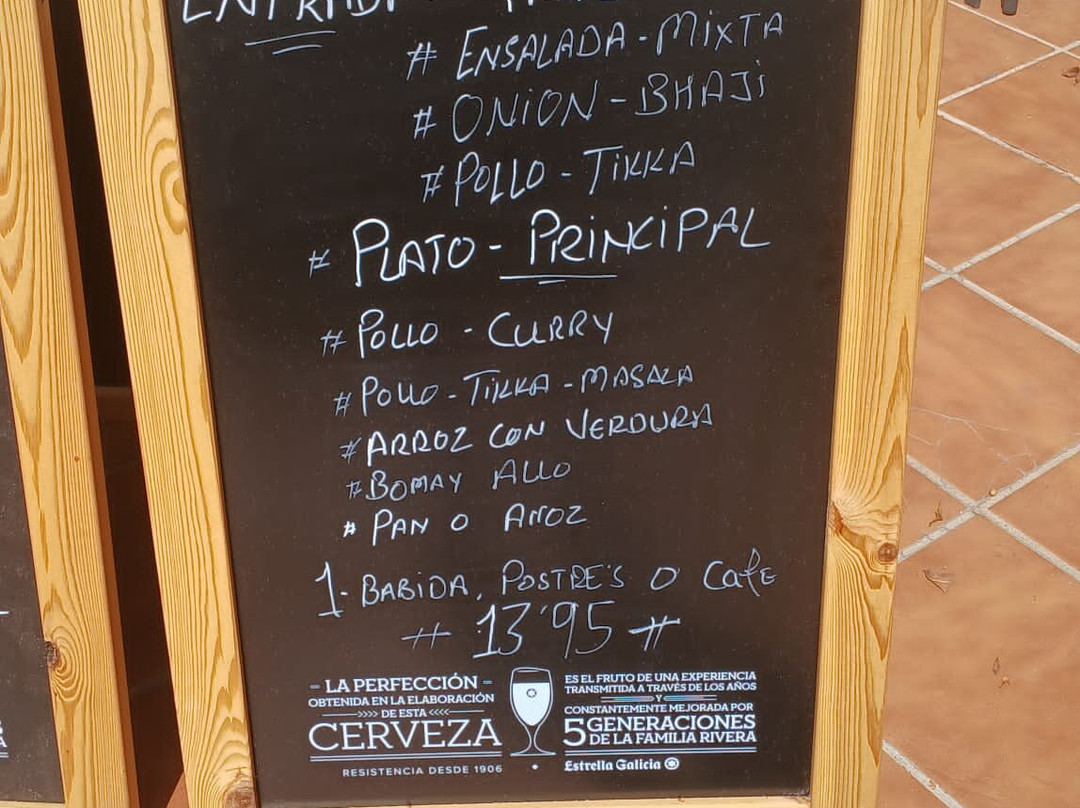 ENTRADA
# ENSALADA - MIXTA
# ONION - BHAJI
# POLLO - TIKKA
# PLATO - PRINCIPAL
# POLLO - CURRY
# POLLO - TIKKA - MASALA
# ARROZ CON VERDURA
# BOMAY ALLO
# PAN O AROZ
1- BABIDA, POSTRE'S O CafE
# 13'95 #
- LA PERFECCIÓN -
OBTENIDA EN LA ELABORACIÓN
>>>> DE ESTA <<<<
CERVEZA
RESISTENCIA DESDE 1906
ES EL FRUTO DE UNA EXPERIENCIA
TRANSMITIDA A TRAVÉS DE LOS AÑOS
Y
CONSTANTEMENTE MEJORADA POR
5 GENERACIONES
DE LA FAMILIA RIVERA
Estrella Galicia